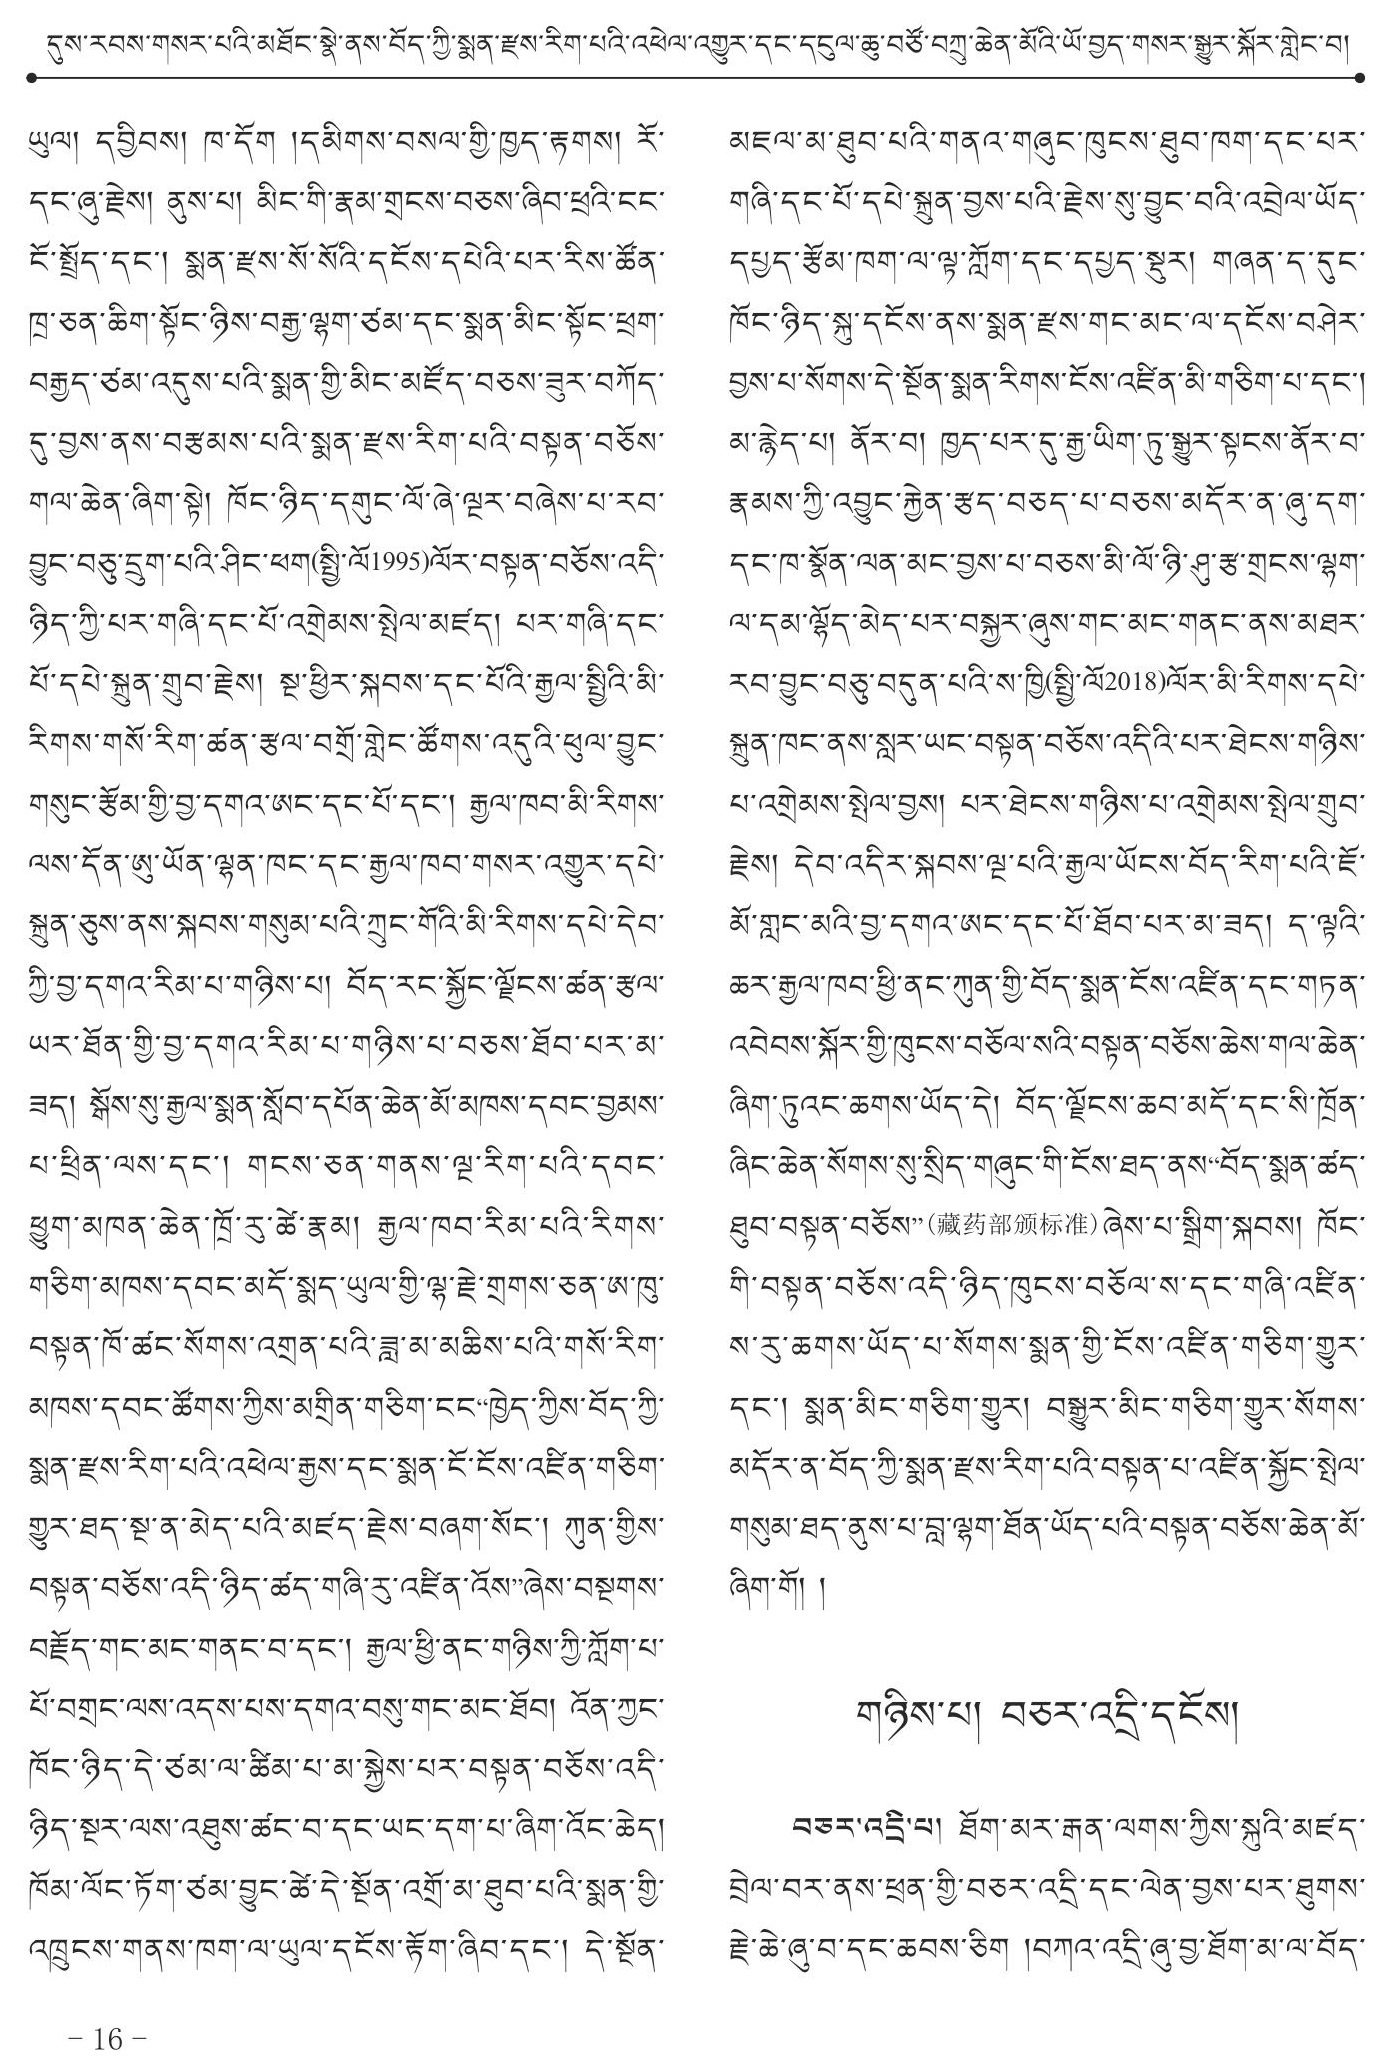 དུས་རབས་གསར་པའི་མཐོང་སྣེ་ནས་བོད་ཀྱི་སྨན་རྫས་རིག་པའི་འཕེལ་འགྱུར་དང་དངུལ་ཆུ་བཙོ་བཀྲུ་ཆེན་མོའི་ཡོ་བྱད་གསར་སྒྱུར་སྐོར་གླེང་བ།
ཡུལ། དབྱིབས། ཁ་དོག །དམིགས་བསལ་གྱི་ཁྱད་རྟགས། རོ་
དང་ཞུ་རྗེས། ནུས་པ། མིང་གི་རྣམ་གྲངས་བཅས་ཞིབ་ཕྲའི་ངང་
ངོ་སྤྲོད་དང་། སྨན་རྫས་སོ་སོའི་དངོས་དཔེའི་པར་རིས་ཚོན་
ཁྲ་ཅན་ཆིག་སྟོང་ཉིས་བརྒྱ་ལྷག་ཙམ་དང་སྨན་མིང་སྟོང་ཕྲག་
བརྒྱད་ཙམ་འདུས་པའི་སྨན་གྱི་མིང་མཛོད་བཅས་ཟུར་བཀོད་
དུ་བྱས་ནས་བརྩམས་པའི་སྨན་རྫས་རིག་པའི་བསྟན་བཅོས་
གལ་ཆེན་ཞིག་སྟེ། ཁོང་ཉིད་དགུང་ལོ་ཞེ་ལྔར་བཞེས་པ་རབ་
བྱུང་བཅུ་དྲུག་པའི་ཤིང་ཕག(སྤྱི་ལོ1995)ལོར་བསྟན་བཅོས་འདི་
ཉིད་ཀྱི་པར་གཞི་དང་པོ་འགྲེམས་སྤེལ་མཛད། པར་གཞི་དང་
པོ་དཔེ་སྐྲུན་གྲུབ་རྗེས། སྔ་ཕྱིར་སྐབས་དང་པོའི་རྒྱལ་སྤྱིའི་མི་
རིགས་གསོ་རིག་ཚན་རྩལ་བགྲོ་གླེང་ཚོགས་འདུའི་ཕུལ་བྱུང་
གསུང་རྩོམ་གྱི་བྱ་དགའ་ཨང་དང་པོ་དང་། རྒྱལ་ཁབ་མི་རིགས་
ལས་དོན་ཨུ་ཡོན་ལྷན་ཁང་དང་རྒྱལ་ཁབ་གསར་འགྱུར་དཔེ་
སྐྲུན་ཅུས་ནས་སྐབས་གསུམ་པའི་ཀྲུང་གོའི་མི་རིགས་དཔེ་དེབ་
ཀྱི་བྱ་དགའ་རིམ་པ་གཉིས་པ། བོད་རང་སྐྱོང་ལྗོངས་ཚན་རྩལ་
ཡར་ཐོན་གྱི་བྱ་དགའ་རིམ་པ་གཉིས་པ་བཅས་ཐོབ་པར་མ་
ཟད། སྒོས་སུ་རྒྱལ་སྨན་སློབ་དཔོན་ཆེན་མོ་མཁས་དབང་བྱམས་
པ་ཕྲིན་ལས་དང་། གངས་ཅན་གནས་ལྔ་རིག་པའི་དབང་
ཕྱུག་མཁན་ཆེན་ཁྲོ་རུ་ཚེ་རྣམ། རྒྱལ་ཁབ་རིམ་པའི་རིགས་
གཅིག་མཁས་དབང་མདོ་སྨད་ཡུལ་གྱི་ལྷ་རྗེ་གྲགས་ཅན་ཨ་ཁུ་
བསྟན་ཁོ་ཚང་སོགས་འགྲན་པའི་ཟླ་མ་མཆིས་པའི་གསོ་རིག་
མཁས་དབང་ཚོགས་ཀྱིས་མགྲིན་གཅིག་ངང“ཁྱེད་ཀྱིས་བོད་ཀྱི་
སྨན་རྫས་རིག་པའི་འཕེལ་རྒྱས་དང་སྨན་ངོ་ངོས་འཛིན་གཅིག་
གྱུར་ཐད་སྔ་ན་མེད་པའི་མཛད་རྗེས་བཞག་སོང་། ཀུན་གྱིས་
བསྟན་བཅོས་འདི་ཉིད་ཚད་གཞི་རུ་འཛིན་འོས”ཞེས་བསྔགས་
བརྗོད་གང་མང་གནང་བ་དང་། རྒྱལ་ཕྱི་ནང་གཉིས་ཀྱི་ཀློག་པ་
པོ་བགྲང་ལས་འདས་པས་དགའ་བསུ་གང་མང་ཐོབ། འོན་ཀྱང་
ཁོང་ཉིད་དེ་ཙམ་ལ་ཚིམ་པ་མ་སྐྱེས་པར་བསྟན་བཅོས་འདི་
ཉིད་སྔར་ལས་འཐུས་ཚང་བ་དང་ཡང་དག་པ་ཞིག་འོང་ཆེད།
ཁོམ་ལོང་ཏོག་ཙམ་བྱུང་ཚེ་དེ་སྔོན་འགྲོ་མ་ཐུབ་པའི་སྨན་གྱི་
འཁྲུངས་གནས་ཁག་ལ་ཡུལ་དངོས་རྟོག་ཞིབ་དང་། དེ་སྔོན་
མཇལ་མ་ཐུབ་པའི་གནའ་གཞུང་ཁུངས་ཐུབ་ཁག་དང་པར་
གཞི་དང་པོ་དཔེ་སྐྲུན་བྱས་པའི་རྗེས་སུ་བྱུང་བའི་འབྲེལ་ཡོད་
དཔྱད་རྩོམ་ཁག་ལ་ལྟ་ཀློག་དང་དཔྱད་སྡུར། གཞན་ད་དུང་
ཁོང་ཉིད་སྐུ་དངོས་ནས་སྨན་རྫས་གང་མང་ལ་དངོས་བཤེར་
བྱས་པ་སོགས་དེ་སྔོན་སྨན་རིགས་ངོས་འཛིན་མི་གཅིག་པ་དང་།
མ་རྙེད་པ། ནོར་བ། ཁྱད་པར་དུ་རྒྱ་ཡིག་ཏུ་སྒྱུར་སྟངས་ནོར་བ་
རྣམས་ཀྱི་འབྱུང་རྐྱེན་རྩད་བཅད་པ་བཅས་མདོར་ན་ཞུ་དག་
དང་ཁ་སྣོན་ལན་མང་བྱས་པ་བཅས་མི་ལོ་ཉི་ཤུ་རྩ་གྲངས་ལྷག་
ལ་དམ་ལྷོད་མེད་པར་བསྐྱར་ཞུས་གང་མང་གནང་ནས་མཐར་
རབ་བྱུང་བཅུ་བདུན་པའི་ས་ཁྱི(སྤྱི་ལོ2018)ལོར་མི་རིགས་དཔེ་
སྐྲུན་ཁང་ནས་སླར་ཡང་བསྟན་བཅོས་འདིའི་པར་ཐེངས་གཉིས་
པ་འགྲེམས་སྤེལ་བྱས། པར་ཐེངས་གཉིས་པ་འགྲེམས་སྤེལ་གྲུབ་
རྗེས། དེབ་འདིར་སྐབས་ལྔ་པའི་རྒྱལ་ཡོངས་བོད་རིག་པའི་ཇོ་
མོ་གླང་མའི་བྱ་དགའ་ཨང་དང་པོ་ཐོབ་པར་མ་ཟད། ད་ལྟའི་
ཆར་རྒྱལ་ཁབ་ཕྱི་ནང་ཀུན་གྱི་བོད་སྨན་ངོས་འཛིན་དང་གཏན་
འབེབས་སྐོར་གྱི་ཁུངས་བཅོལ་སའི་བསྟན་བཅོས་ཆེས་གལ་ཆེན་
ཞིག་ཏུའང་ཆགས་ཡོད་དེ། བོད་ལྗོངས་ཆབ་མདོ་དང་སི་ཁྲོན་
ཞིང་ཆེན་སོགས་སུ་སྲིད་གཞུང་གི་ངོས་ཐད་ནས“བོད་སྨན་ཚད་
ཐུབ་བསྟན་བཅོས”(藏药部颁标准)ཞེས་པ་སྒྲིག་སྐབས། ཁོང་
གི་བསྟན་བཅོས་འདི་ཉིད་ཁུངས་བཅོལ་ས་དང་གཞི་འཛིན་
ས་རུ་ཆགས་ཡོད་པ་སོགས་སྨན་གྱི་ངོས་འཛིན་གཅིག་གྱུར་
དང་། སྨན་མིང་གཅིག་གྱུར། བསྒྱུར་མིང་གཅིག་གྱུར་སོགས་
མདོར་ན་བོད་ཀྱི་སྨན་རྫས་རིག་པའི་བསྟན་པ་འཛིན་སྐྱོང་སྤེལ་
གསུམ་ཐད་ནུས་པ་བླ་ལྷག་ཐོན་ཡོད་པའི་བསྟན་བཅོས་ཆེན་མོ་
ཞིག་གོ། །
གཉིས་པ། བཅར་འདྲི་དངོས།
བཅར་འདྲི་པ། ཐོག་མར་རྒན་ལགས་ཀྱིས་སྐུའི་མཛད་
བྲེལ་བར་ནས་ཕྲན་གྱི་བཅར་འདྲི་དང་ལེན་བྱས་པར་ཐུགས་
རྗེ་ཆེ་ཞུ་བ་དང་ཆབས་ཅིག །བཀའ་འདྲི་ཞུ་བྱ་ཐོག་མ་ལ་བོད་
- 16 -